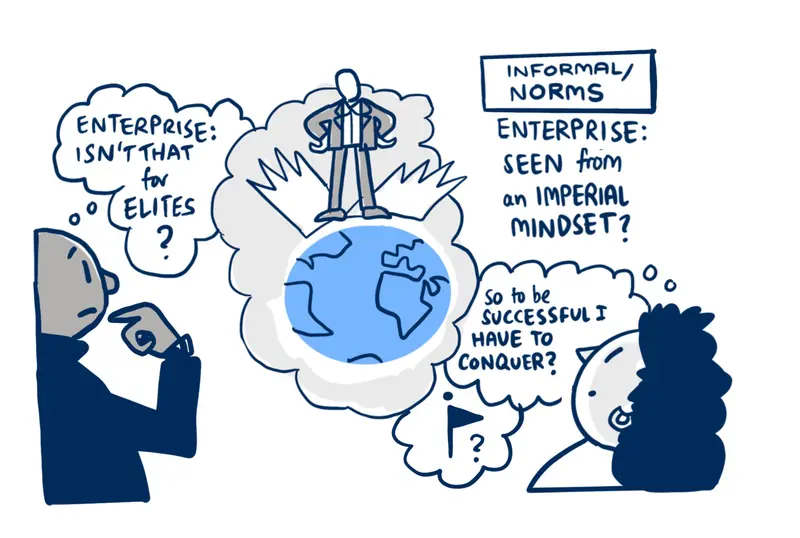 ENTERPRISE:
ISN'T THAT
for
ELITES
?
INFORMAL/
NORMS
ENTERPRISE:
SEEN from
an IMPERIAL
MINDSET?
So to be
SUCCESSFUL I
HAVE TO
CONQUER?
?